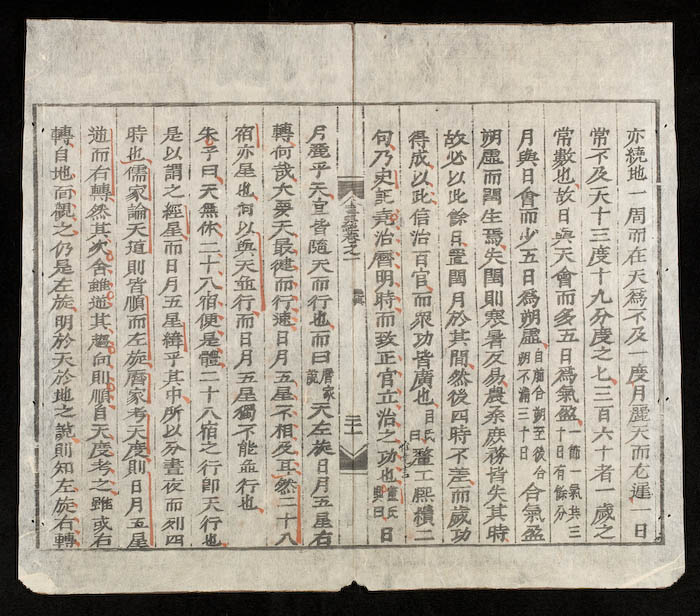 亦繞地一周而在天爲不及一度月麗天而尤遲一日
常不及天十三度十九分度之七三百六十者一歲之
常數也故日與天會而多五日爲氣盈節一氣共三十日有餘分
月與日會而少五日爲朔虛自前合朔至後合朔不滿三十日合氣盈
朔虛而閏生焉失閏則寒暑反易農桑庶務皆失其時
故必以此餘日置閏月於其間然後四時不差而歲功
得成以此信治百官而衆功皆廣也呂氏曰釐工熙績二
句乃史記堯治曆明時而致正官立治之功也董氏興曰日
書經卷之一
堯典
二十
月麗乎天宜皆隨天而行也而曰曆家說天左旋日月五星右
轉何哉大要天最健而行速日月五星不相及耳然二十八
宿亦星也何以與天並行而日月五星獨不能並行也
朱子曰天無体二十八宿便是體二十八宿之行即天行也
是以謂之經星而日月五星緯乎其中所以分晝夜而列四
時也儒家論天道則皆順而左旋曆家考天度則日月五星
逆而右轉然其次舍雖逆其趨向則順自天度考之雖或右
轉自地面觀之仍是左旋明於天於地之說則知左旋右轉